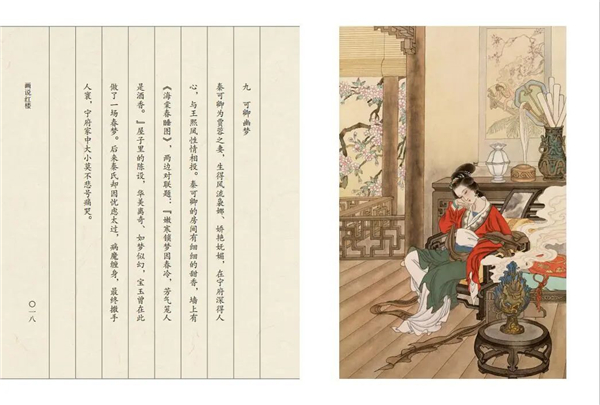 九 可卿幽梦
秦可卿为贾蓉之妻，生得风流袅娜、娇艳妩媚，在宁府深得人
心，与王熙凤性情相投。秦可卿的房间有细细的甜香，墙上有
《海棠春睡图》，两边对联题：『嫩寒锁梦因春冷，芳气笼人
是酒香。』屋子里的陈设，华美离奇、如梦似幻，宝玉曾在此
做了一场春梦。后来秦氏却因忧虑太过，病魔缠身，最终撒手
人寰，宁府家中大小莫不悲号痛哭。
画说红楼
〇一八